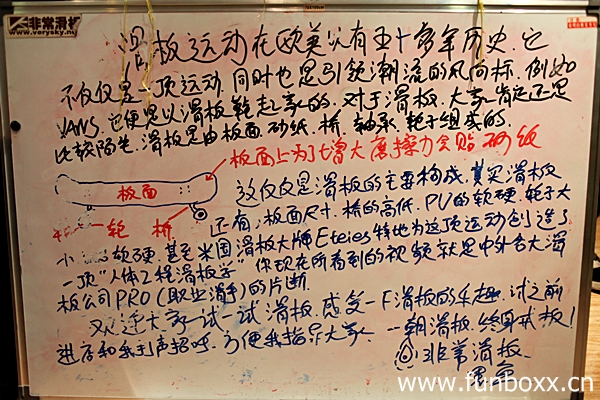 非常滑板
www.verysky.net
滑板运动在欧美以有五十多年历史.它
不仅仅是一项运动.同时也是引领潮流的风向标.例如
VANS.它便是以滑板鞋起家的.对于滑板.大家肯定还是
比较陌生.滑板是由板面.砂纸.桥.轴承.轮子组成的.
板面上为了增大磨擦力会贴砂纸
板面
这仅仅是滑板的主要构成.其实滑板
轮 桥
还有:板面尺寸.桥的高低.PU的软硬.轮子大
小 软硬.甚至米国滑板大牌Eteies特地为这项运动创造了
一项"人体工程滑板学" 你现在所看到的视频就是中外各大滑
板公司PRO(职业滑手)的片断
欢迎大家试一试滑板.感受一下滑板的乐趣.试之前
进店和我们声招呼.方便我指导大家. 一朝滑板.终身戒板!
非常滑板.
www.funboxx.cn